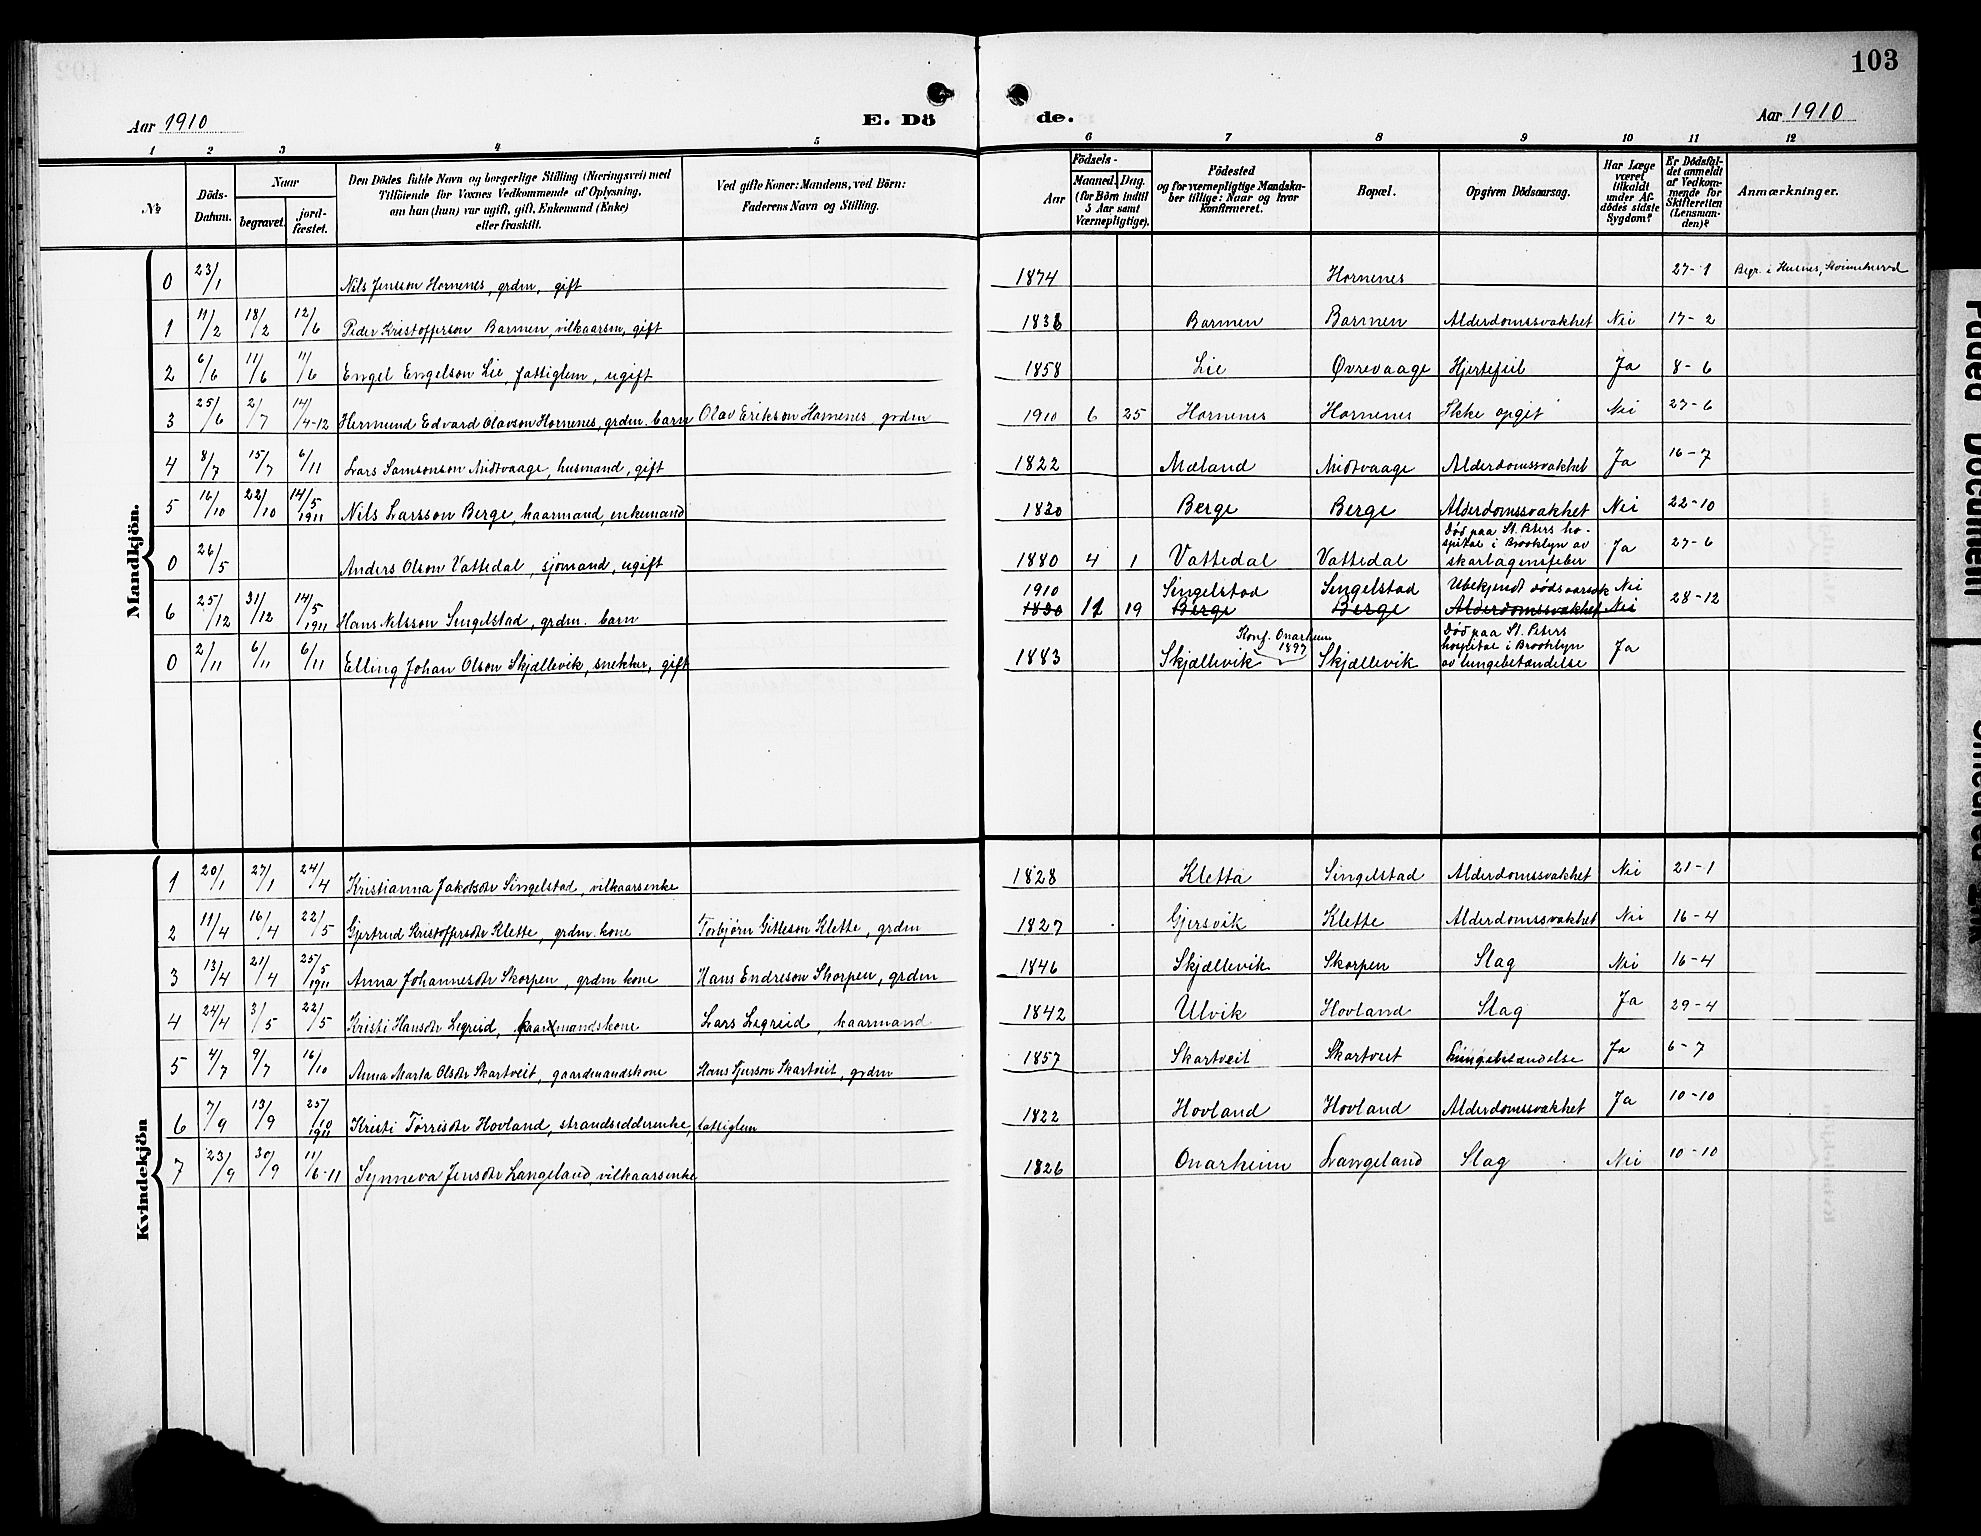 103
Aar 1910 E. Dö de. Aar 1910
1 2 3 4 5 6 7 8 9 10 11 12
№
Döds-Datum.
Naar
begravet.
jord-fæstet.
Den Dödes fulde Navn og borgerlige Stilling (Næringsvei) med
Tilföiende för Voxnes Vedkommende af Oplysning,
om han (hun) var ugift, gift, Enkemand (Enke)
eller fraskilt.
Ved gifte Koner: Mandens, ved Börn:
Faderens Navn og Stilling.
Födsels-
Aar
Maaned. Dag.
(for Börn indtil
5 Aar samt
Værnepligtige).
Födested
og for værnepligtige Mandska-
ber tillige: Naar og hvor
Konfirmeret.
Bopæl.
Opgiven Dödsaarsag.
Har Læge
været
tilkaldt
under Af-
dödes sidste
Sygdom?
Er Dödsfal-
det anmeldt
af Vedkom-
mende for
Skifteretten
(Lensman-
den)?
Anmærkninger.
Mandkjön.
0 23/1 Nils Jensson Hornenes, grdm, gift 1874 Hornenes 27-1 Begr. i Husnes,
1 11/2 18/2 12/6 Peder Kristofferson Barmen, vilkaarsm, gift 1836 Barmen Barmen Alderdomssvakhet Nei 17-2
2 6/6 11/6 11/6 Engel Engelson Lie, fattiglem, ugift 1858 Lie Øvrevaage Hjertefeil Ja 8-6
3 25/6 2/7 14/4-12 Hermund Edvard Olavson Hornenes, grdm. barn Olav Erikson Hornenes, grdm 1910 6 25 Hornenes Hornenes Ikke opgit Nei 27-6
4 8/7 15/7 6/11 Lars Samsonson Midtvaage, husmand, gift 1822 Mæland Midtvaage Alderdomssvakhet Ja 16-7
5 16/10 22/10 14/5 1911 Nils Larsson Berge, kaarmand, enkemand 1830 Berge Berge Alderdomssvakhet Nei 22-10
0 26/5 Anders Olson Vattedal, sjømand, ugift 1880 4 1 Vattedal Vattedal Død paa St. Peters ho-
spital i Brooklyn av
skarlagensfeber Ja 27-6
6 25/12 31/12 14/5 1911 Hans Nilsson Singelstad, grdm. barn 1910 11 19 Singelstad Singelstad Ubekjendt dødsaarsak Nei 28-12
1830 Berge Berge Alderdomssvakhet Nei
0 2/11 6/11 6/11 Elling Johan Olson Skjællevik, snekker, gift 1883 Skjællevik Konf. Onarheim
1897 Skjællevik Død paa St. Peters
hospital i Brooklyn
av lungebetændelse Ja
Kvindekjön
1 20/1 27/1 24/4 Kristianna Jakobsdtr Singelstad, vilkaarsenke 1828 Kletta Singelstad Alderdomssvakhet Nei 21-1
2 11/4 16/4 22/5 Gjertrud Kristoffersdtr Klette, grdm. kone Torbjørn Gitleson Klette, grdm 1827 Gjersvik Klette Alderdomssvakhet Nei 16-4
3 13/4 21/4 25/5 1911 Anna Johannesdtr Skorpen, grdm kone Hans Endreson Skorpen, grdm 1846 Skjællevik Skorpen Slag Nei 16-4
4 24/4 3/5 22/5 Kristi Hansdtr Legreid, kaarmandskone Lars Legreid, kaarmand 1842 Ulvik Hovland Slag Ja 29-4
5 4/7 9/7 16/10 Anna Marta Olsdtr Skartveit, gaardmandskone Hans Skartveit, grdm 1857 Skartveit Skartveit Lungebetændelse Ja 6-7
6 7/9 13/9 25/10 1911 Kristi Tørrisdtr Hovland, strandsidderenke, fattiglem 1822 Hovland Hovland Alderdomssvakhet Ja 10-10
7 23/9 30/9 11/6-11 Synneva Jensdtr Langeland, vilkaarsenke 1826 Onarheim Langeland Slag Nei 10-10